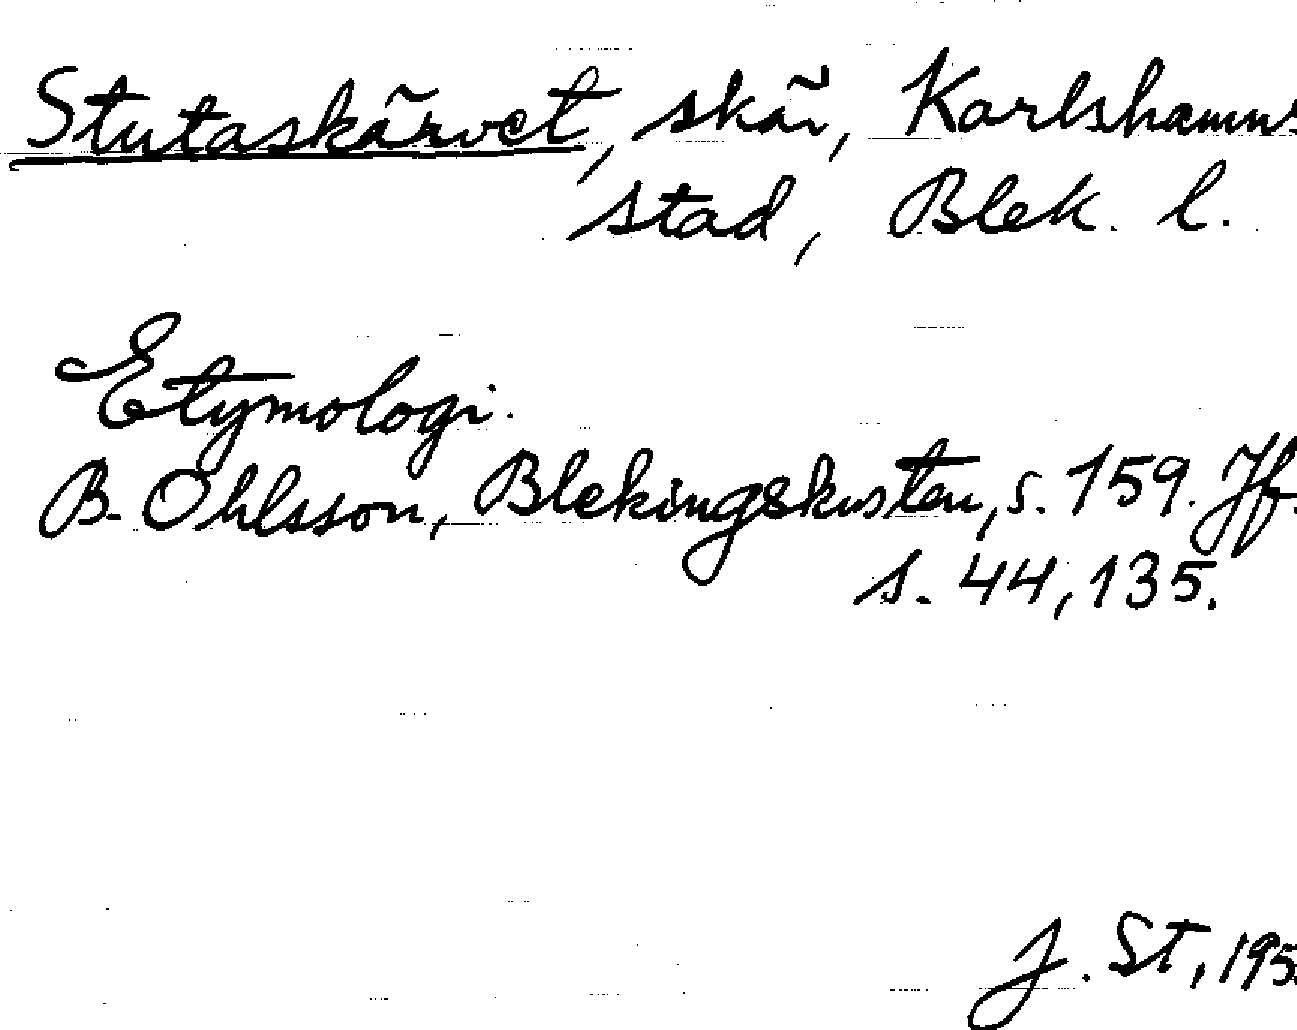 Stutaskärvet, skär, Karlshamns
stad, Blek. l.
Etymologi.
B. Ohlsson, Blekingskusten, s. 159. Jfr.
s. 44, 135.
J. St, 195